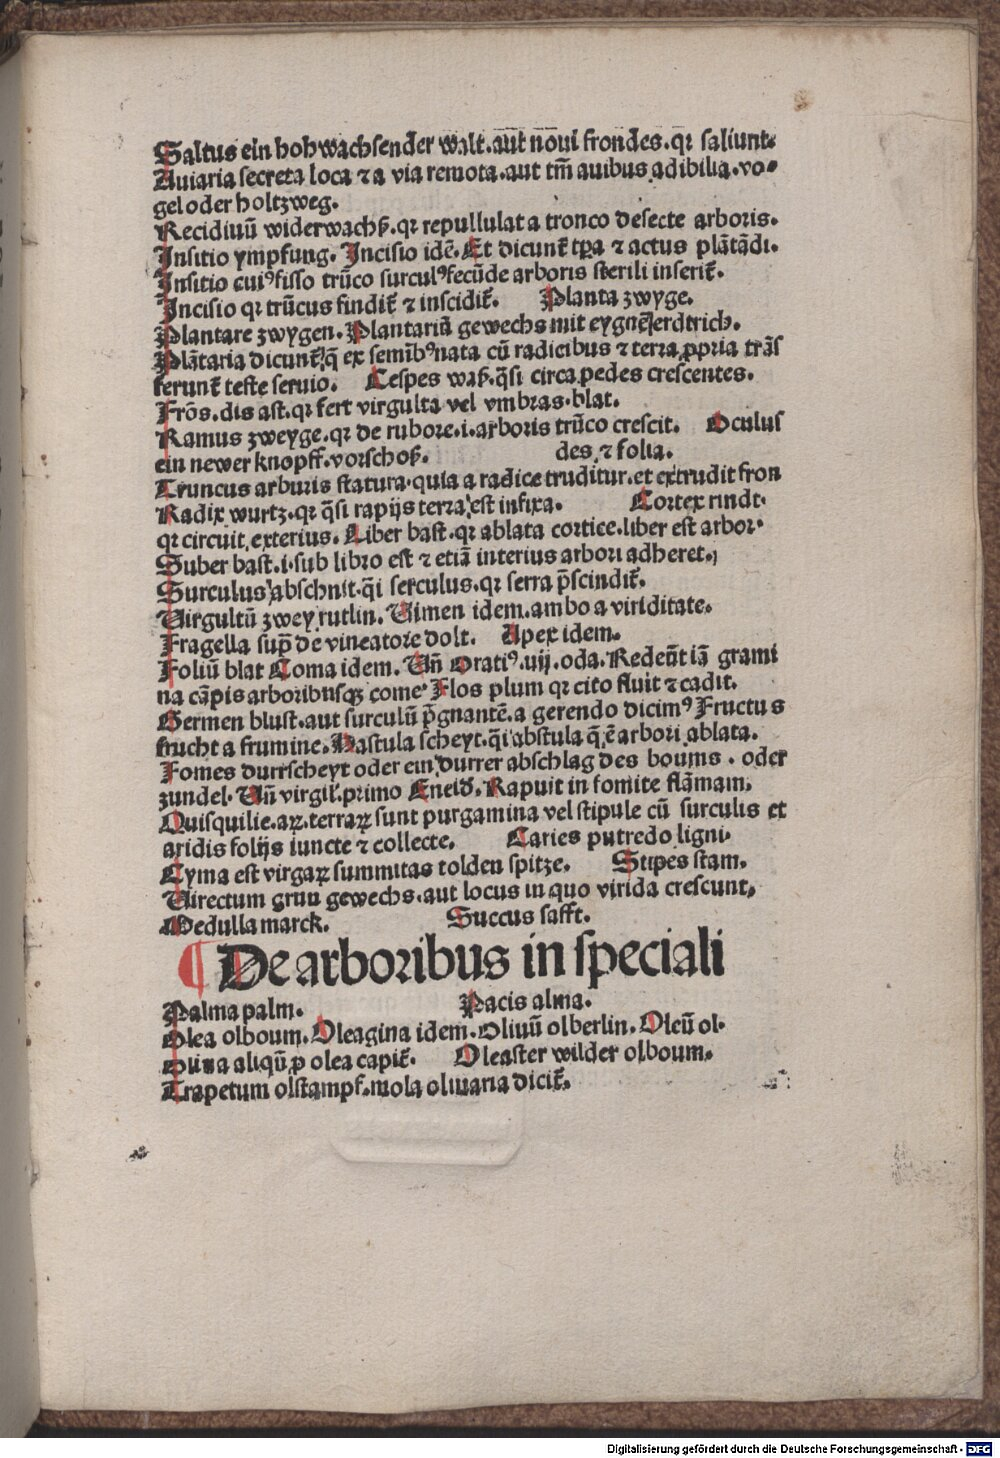 Saltus ein hohwachsender walt.aut̄ nōui frondes.qꝛ saliunt.
Auiaria secreta loca ⁊ a via remota.aut tm̄ auibus adibilia.vo⸗
gel oder holtzweg.
Recidiuū widerwachß.qꝛ repullulat a tronco desecte arboris.
Insitio ympfung. Incisio idē. Et dicunt̄ tp̄a ⁊ actus plātādi.
Insitio cuiꝰ fisso trūco surculꝰ fecūde arboris sterili inserit̄.
Incisio qꝛ trūcus findit̄ ⁊ inscidit̄. Planta zwyge.
Plantare zwygen. Plantariū gewechs mit eygnē erdtrich.
Plātaria dicunt̄ q̄ ex semībꝰ nata cū radicibus ⁊ terra ꝓpria trās
ferunt̄ teste seruio. Cespes waß.q̄si circa pedes crescentes.
Frōs.dis ast.qꝛ fert virgulta vel vmbras.blat.
Ramus zweyge.qꝛ de rubore.i.arboris trūco crescit. Oculus
ein newer knopff.vorschoß. des.⁊ folia.
Truncus arburis statura.quia a radice truditur.et extrudit fron
Radix wurtz.qꝛ q̄si rapijs terra est infixa. Cortex rindt.
qꝛ circuit exterius. Liber bast.qꝛ ablata cortice.liber est arbor.
Suber bast.i.sub libro est ⁊ etiā interius arbori adheret.
Surculus abschnit.q̄i serculus.qꝛ serra p̄scindit̄.
Virgultū zwey rutlin. Vimen idem.ambo a viriditate.
Fragella sup̄ de vineatore dolt. Apex idem.
Foliū blat Coma idem. Vn̄ Oratiꝰ.uij.oda.Redeūt iā grami
na cāpis arboribusqꝫ come. Flos plum qꝛ cito fluit ⁊ cadit.
Germen blust.aut surculū p̄gnantē.a gerendo dicimꝰ Fructus
frucht a frumine. Hastula scheyt.q̄i abstula q̄ ē arbori ablata.
Fomes durrscheyt oder ein durrer abschlag des boums. oder
zundel. Vn̄ virgil̄.primo Eneid̄. Rapuit in fomite flāmam.
Quisquilie.aꝝ.terraꝝ sunt purgamina vel stipule cū surculis et
aridis folijs iuncte ⁊ collecte. Caries putredo ligni.
Cyma est virgaꝝ summitas tolden spitze. Stipes stam.
Virectum grun gewechs.aut locus in quo virida crescunt.
Medulla marck. Succus safft.
¶ De arboribus in speciali
Palma palm. Pacis alma.
Olea olboum. Oleagina idem. Oliuū olberlin. Oleū ol.
Oliua aliqū ꝓ olea capit̄. Oleaster wilder olboum.
Trapetum olstampf.mola oliuaria dicit̄.
Digitalisierung gefördert durch die Deutsche Forschungsgemeinschaft - DFG